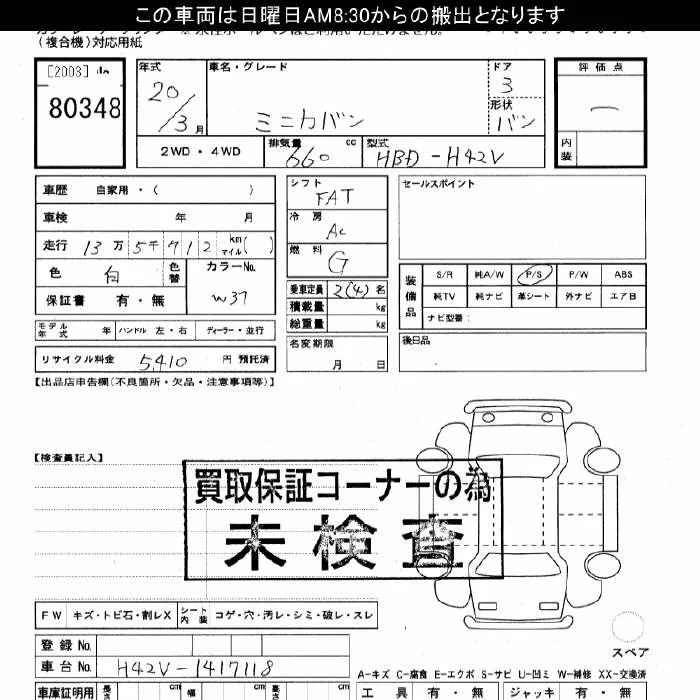 この車両は日曜日AM8:30からの搬出となります
(複合機)対応用紙
[2003]
80348
年式 車名・グレード ドア 評価点
20/3月 ミニカバン 3 —
形状 バン
2WD・4WD 排気量 660 cc 型式 HBD-H42V 内装
車歴 自家用・( )
車検 年 月
走行 13万5千912 km マイル( )
色 白 色替 カラーNo. W37
保証書 有・無
モデル年式 年 ハンドル 左・右 ディーラー・並行
リサイクル料金 5,410 円 預託済
シフト FAT
冷房 AC
燃料 G
乗車定員 2(4) 名
積載量 kg
総重量 kg
名変期限 月 日
セールスポイント
装備品 S/R 純A/W P/S P/W ABS
純TV 純ナビ 革シート 外ナビ エアB
ナビ型番:
後日品
【出品店申告欄(不良箇所・欠品・注意事項等)】
【検査員記入】
買取保証コーナーの為
未検査
FW キズ・トビ石・割レX シート内装 コゲ・穴・汚レ・シミ・破レ・スレ
スペア
登録No.
車台No. H42V-1417118
A-キズ C-腐食 E-エクボ S-サビ U-凹ミ W-補修 XX-交換済
車庫証明用 長さ cm 幅 cm 高さ cm 工具 有・無 ジャッキ 有・無